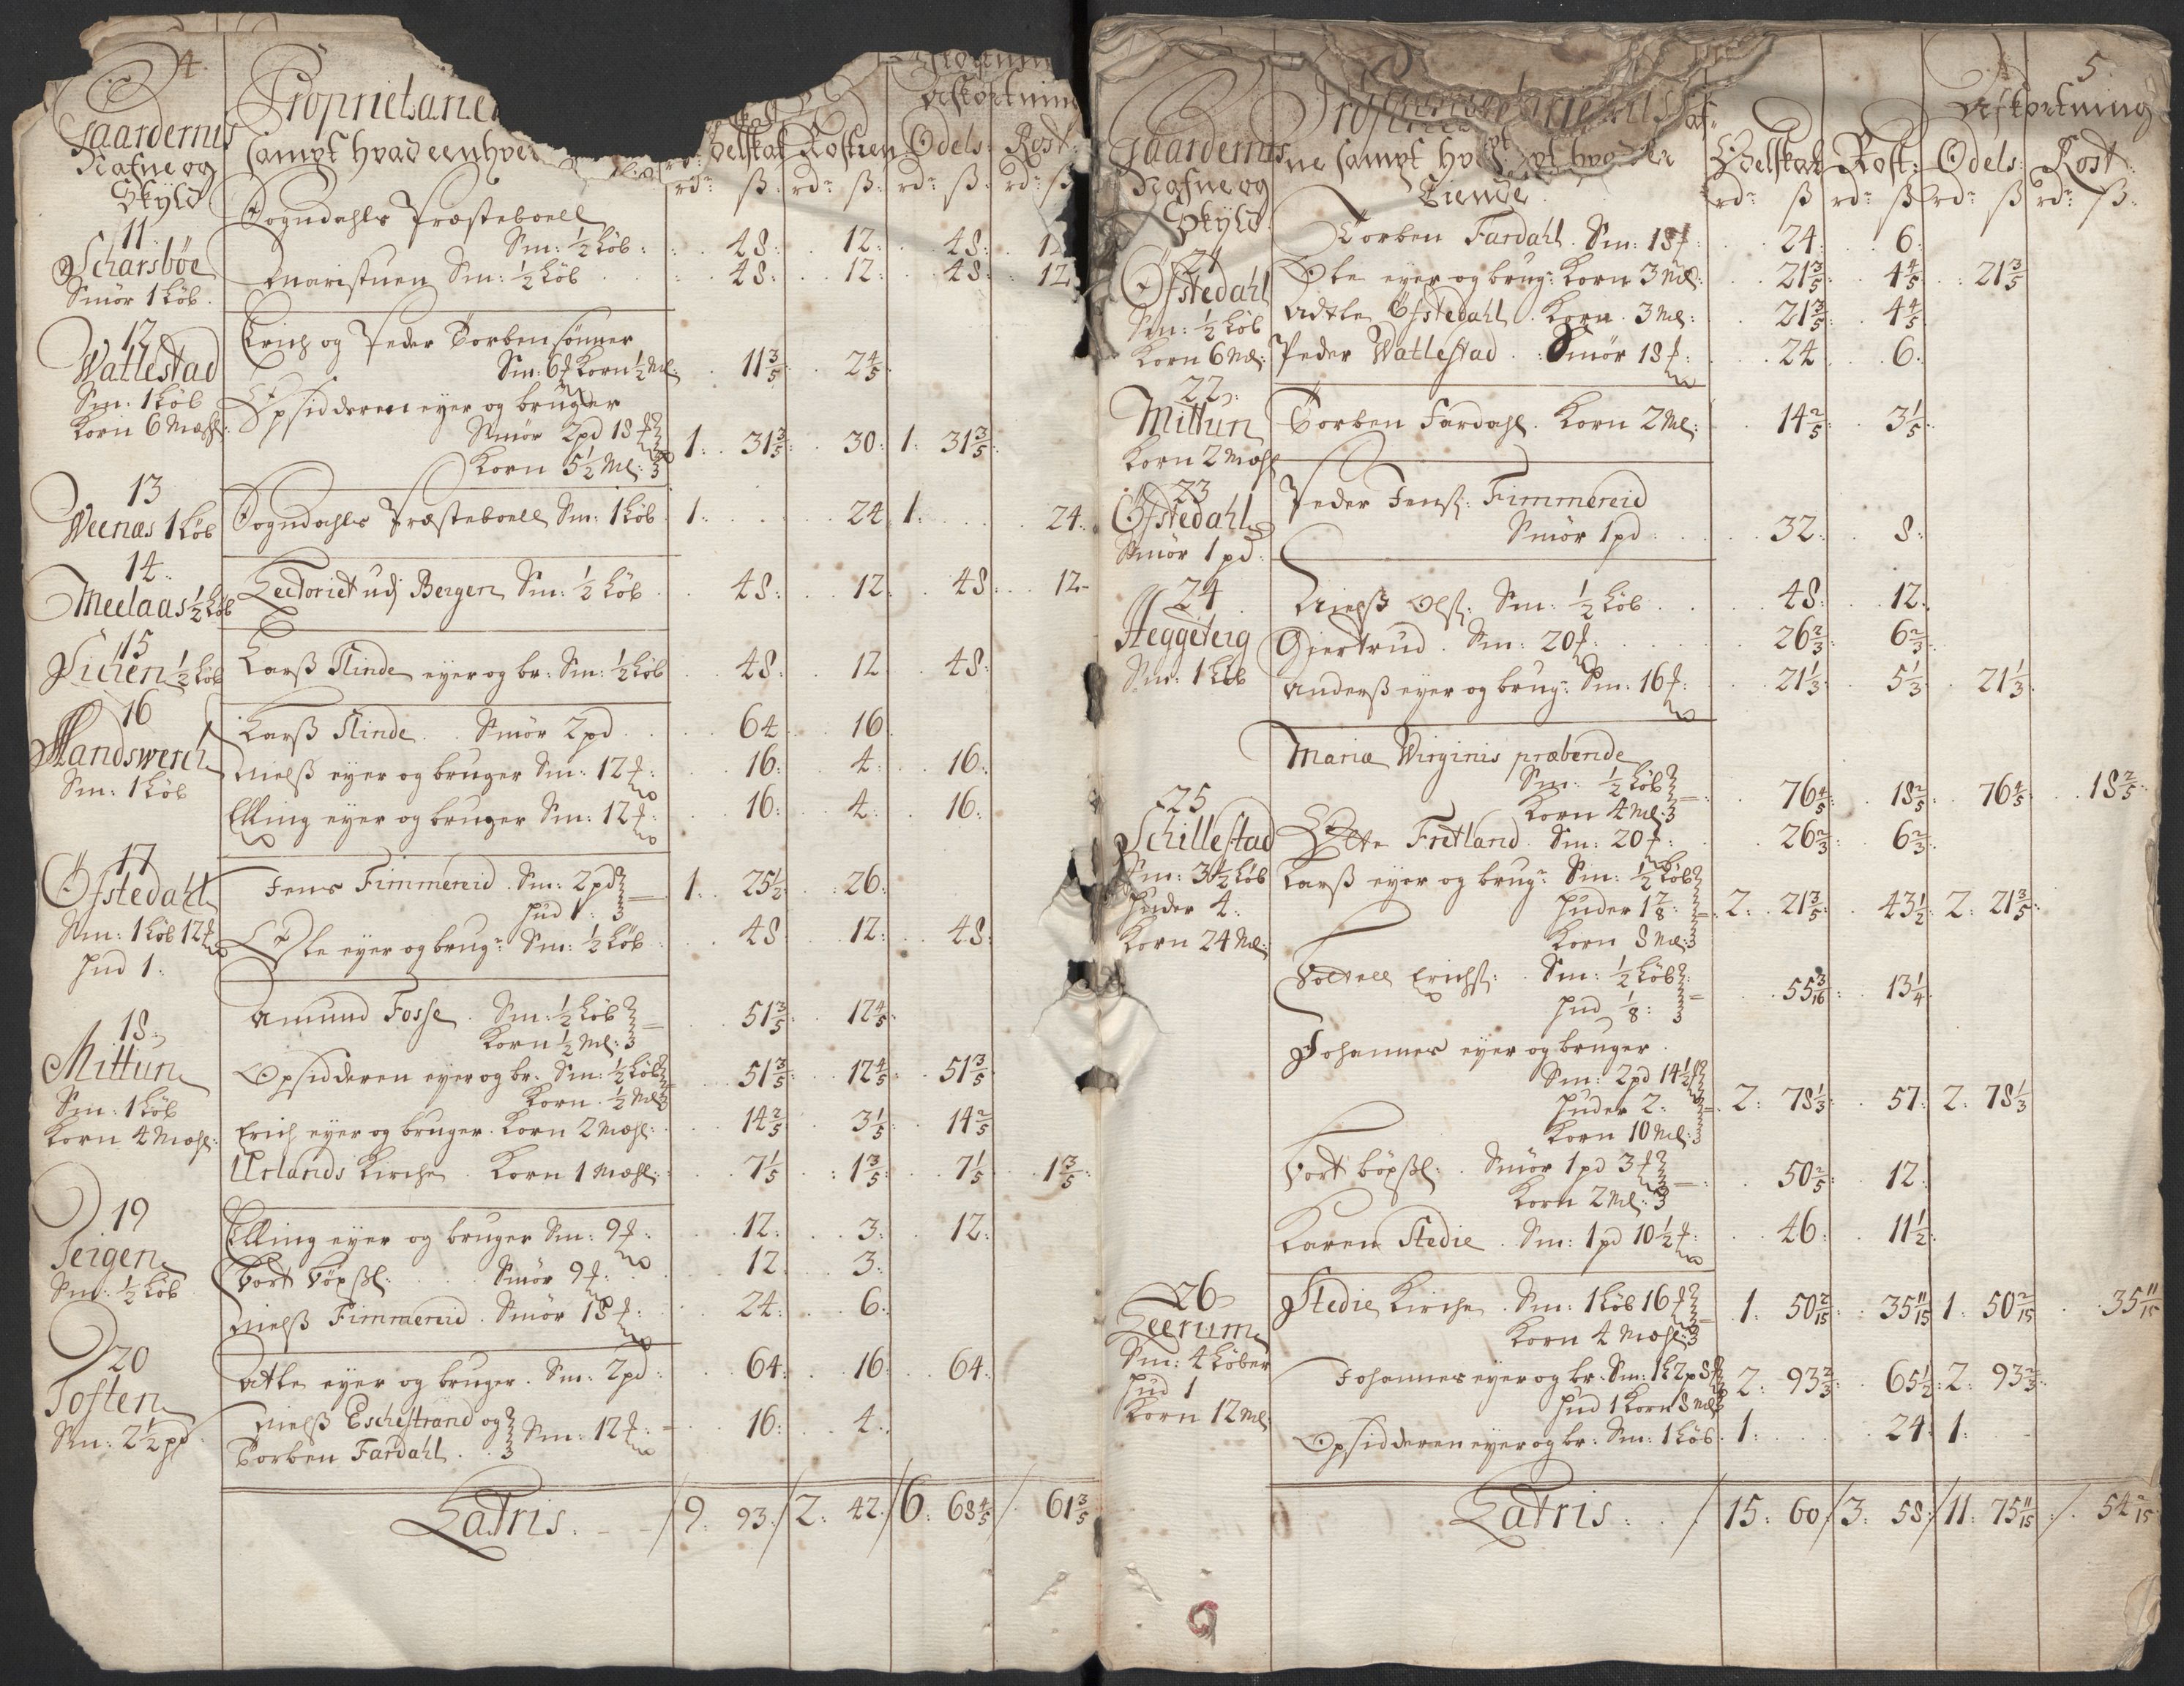 4.
Gaardernis
Nafne og
Skyld
Proprietarie
sampt hvad eenhver
Afkortning
Odelskat Rostien Odels: Rost:
rdr ß: rdr ß: rdr ß: rdr ß
11.
Scharsbøe
Smör 1 Löb.
Sogndahls Præsteboell
Sm: ½ Löb: 48: 12: 48: 12
Maristuen Sm: ½ Löb 48: 12: 48: 12
12
Watlestad
Sm: 1 Löb
Korn 6 Mæhl:
Erich og Peder Torbensönner
Sm: 6 ℔ Korn ½ Ml: 11 3/5: 2 4/5:
Opsidderen eyer og bruger
Smör 2 pd 18 ℔
Korn 5½ Ml: 1: 31 3/5: 30: 1: 31 3/5:
13
Weenæs 1 Löb
Sogndahls Præsteboell Sm: 1 Löb 1: 24 1: 24:
14:
Meelaas ½ Löb
Lectoriet udj Bergen Sm: ½ Löb 48: 12 48: 12
15
Siuen ½ Löb
Larß Slinde eyer og br: Sm: ½ Löb 48: 12 48:
16
Handswerch
Sm: 1 Löb
Larß Slinde Smör 2 pd 64 16
Nielß eyer og bruger Sm: 12 ℔: 16: 4: 16:
Elling eyer og bruger Sm: 12 ℔: 16: 4: 16:
17
Öfstedahl
Sm: 1 Löb 12 ℔
Hud 1:
Jens Fimmereid Sm: 2 pd
Hud 1: 1: 25½ 26:
Ole eyer og brugr Sm: ½ Löb 48 12: 48:
18:
Mittun
Sm: 1 Löb
Korn 4 Mæhl:
Amund Fosse Sm: ½ Löb
Korn ½ Ml: 51 3/5: 12 4/5:
Opsidderen eyer og br: Sm: ½ Löb
Korn ½ Ml 51 3/5: 12 4/5: 51 3/5
Erich eyer og bruger. Korn 2 Mæhl: 14 2/5: 3 1/5: 14 2/5
Urlands Kirche Korn 1 Mæhl: 7 1/5: 1 3/5: 7 1/5 1 3/5:
19
Teigen
Sm: ½ Löb
Elling eyer og bruger Sm: 9 ℔: 12: 3: 12:
Bort böxsl: Smör 9 ℔: 12 3:
Nielß Fimmereid Smör 18 ℔: 24: 6:
20
Toften
Sm: 2½ pd
Atle eyer og bruger. Sm: 2 pd: 64: 16: 64:
Nielß Eschestrand og
Torben Fardahl. Sm: 12 ℔: 16: 4:
Latris. 9: 93: 2: 42: 6: 68 4/5 61 3/5
5
Gaardernis
Nafne og
Skyld
Tiende
Afkortning
Odelskat Rost: Odels: Rost:
rdr ß rdr ß: rdr ß rdr ß:
21
Öfstedahl
Sm: ½ Löb
Korn 6 Mæ:
Torben Fardahl. Sm: 18 ℔ 24: 6:
Ole eyer og brugr: Korn 3 Mæ: 21 3/5: 4 4/5: 21 3/5
Adtle Öfstedahl. Korn 3 Ml: 21 3/5: 4 4/5:
Peder Watlestad Smör 18 ℔: 24 6:
22:
Mittun
Korn 2 Mæhl
Torben Fardahl. Korn 2 Ml: 14 2/5: 3 1/5:
23
Öfstedahl
Smör 1 pd:
Peder Jenß: Fimmereid
Smör 1 pd 32: 8:
24
Heggeteig
Sm: 1 Löb
Nielß Olß: Sm: ½ Löb 48: 12:
Giertrud. Sm: 20 ℔: 26 2/3: 6 2/3:
Anderß eyer og brugr: Sm: 16 ℔: 21 1/3: 5 1/3: 21 1/3:
25
Schillestad
Sm: 3½ Löb
Huder 4:
Korn 24 Ml:
Mariæ Virginis præbende
Sm: ½ Löb
Korn 4 Ml: 76 4/5: 18 2/5: 76 4/5 18 2/5:
Otte Fretland. Sm: 20 ℔: 26 2/3: 6 2/3:
Larß eyer og brugr Sm: ½ Löb
Huder 1 7/8:
Korn 8 Ml: 2: 21 3/5: 43½ 2: 21 3/5:
Erichß: Sm: ½ Löb
Hud 1/8: 55 3/16: 13¼
Johannes eyer og bruger
Sm: 2 pd 14½ ℔
Huder 2:
Korn 10 Ml: 2: 78 1/3: 57: 2: 78 1/3
Bort böxsl: Smör 1 pd 3 ℔
Korn 2 Ml: 50 2/5: 12:
Karen Stedie Sm: 1 pd 10½ ℔: 46: 11½:
26
Leerum
Sm: 4 Löber
Hud 1
Korn 12 Ml:
Stedie Kirche. Sm: 1 Löb 16 ℔
Korn 4 Mæhl 1: 50 2/15: 35 11/15 1: 50 2/15 35 11/15
Johannes eyer og br: Sm: 1 L 2 p 8 ℔
Hud 1 Korn 8 Ml 2: 93 2/3: 65½: 2: 93 2/3:
Opsidderen eyer og br: Sm: 1 Löb. 1: 24: 1:
Latris. 15: 60 3: 58: 11: 75 11/15 54 2/15